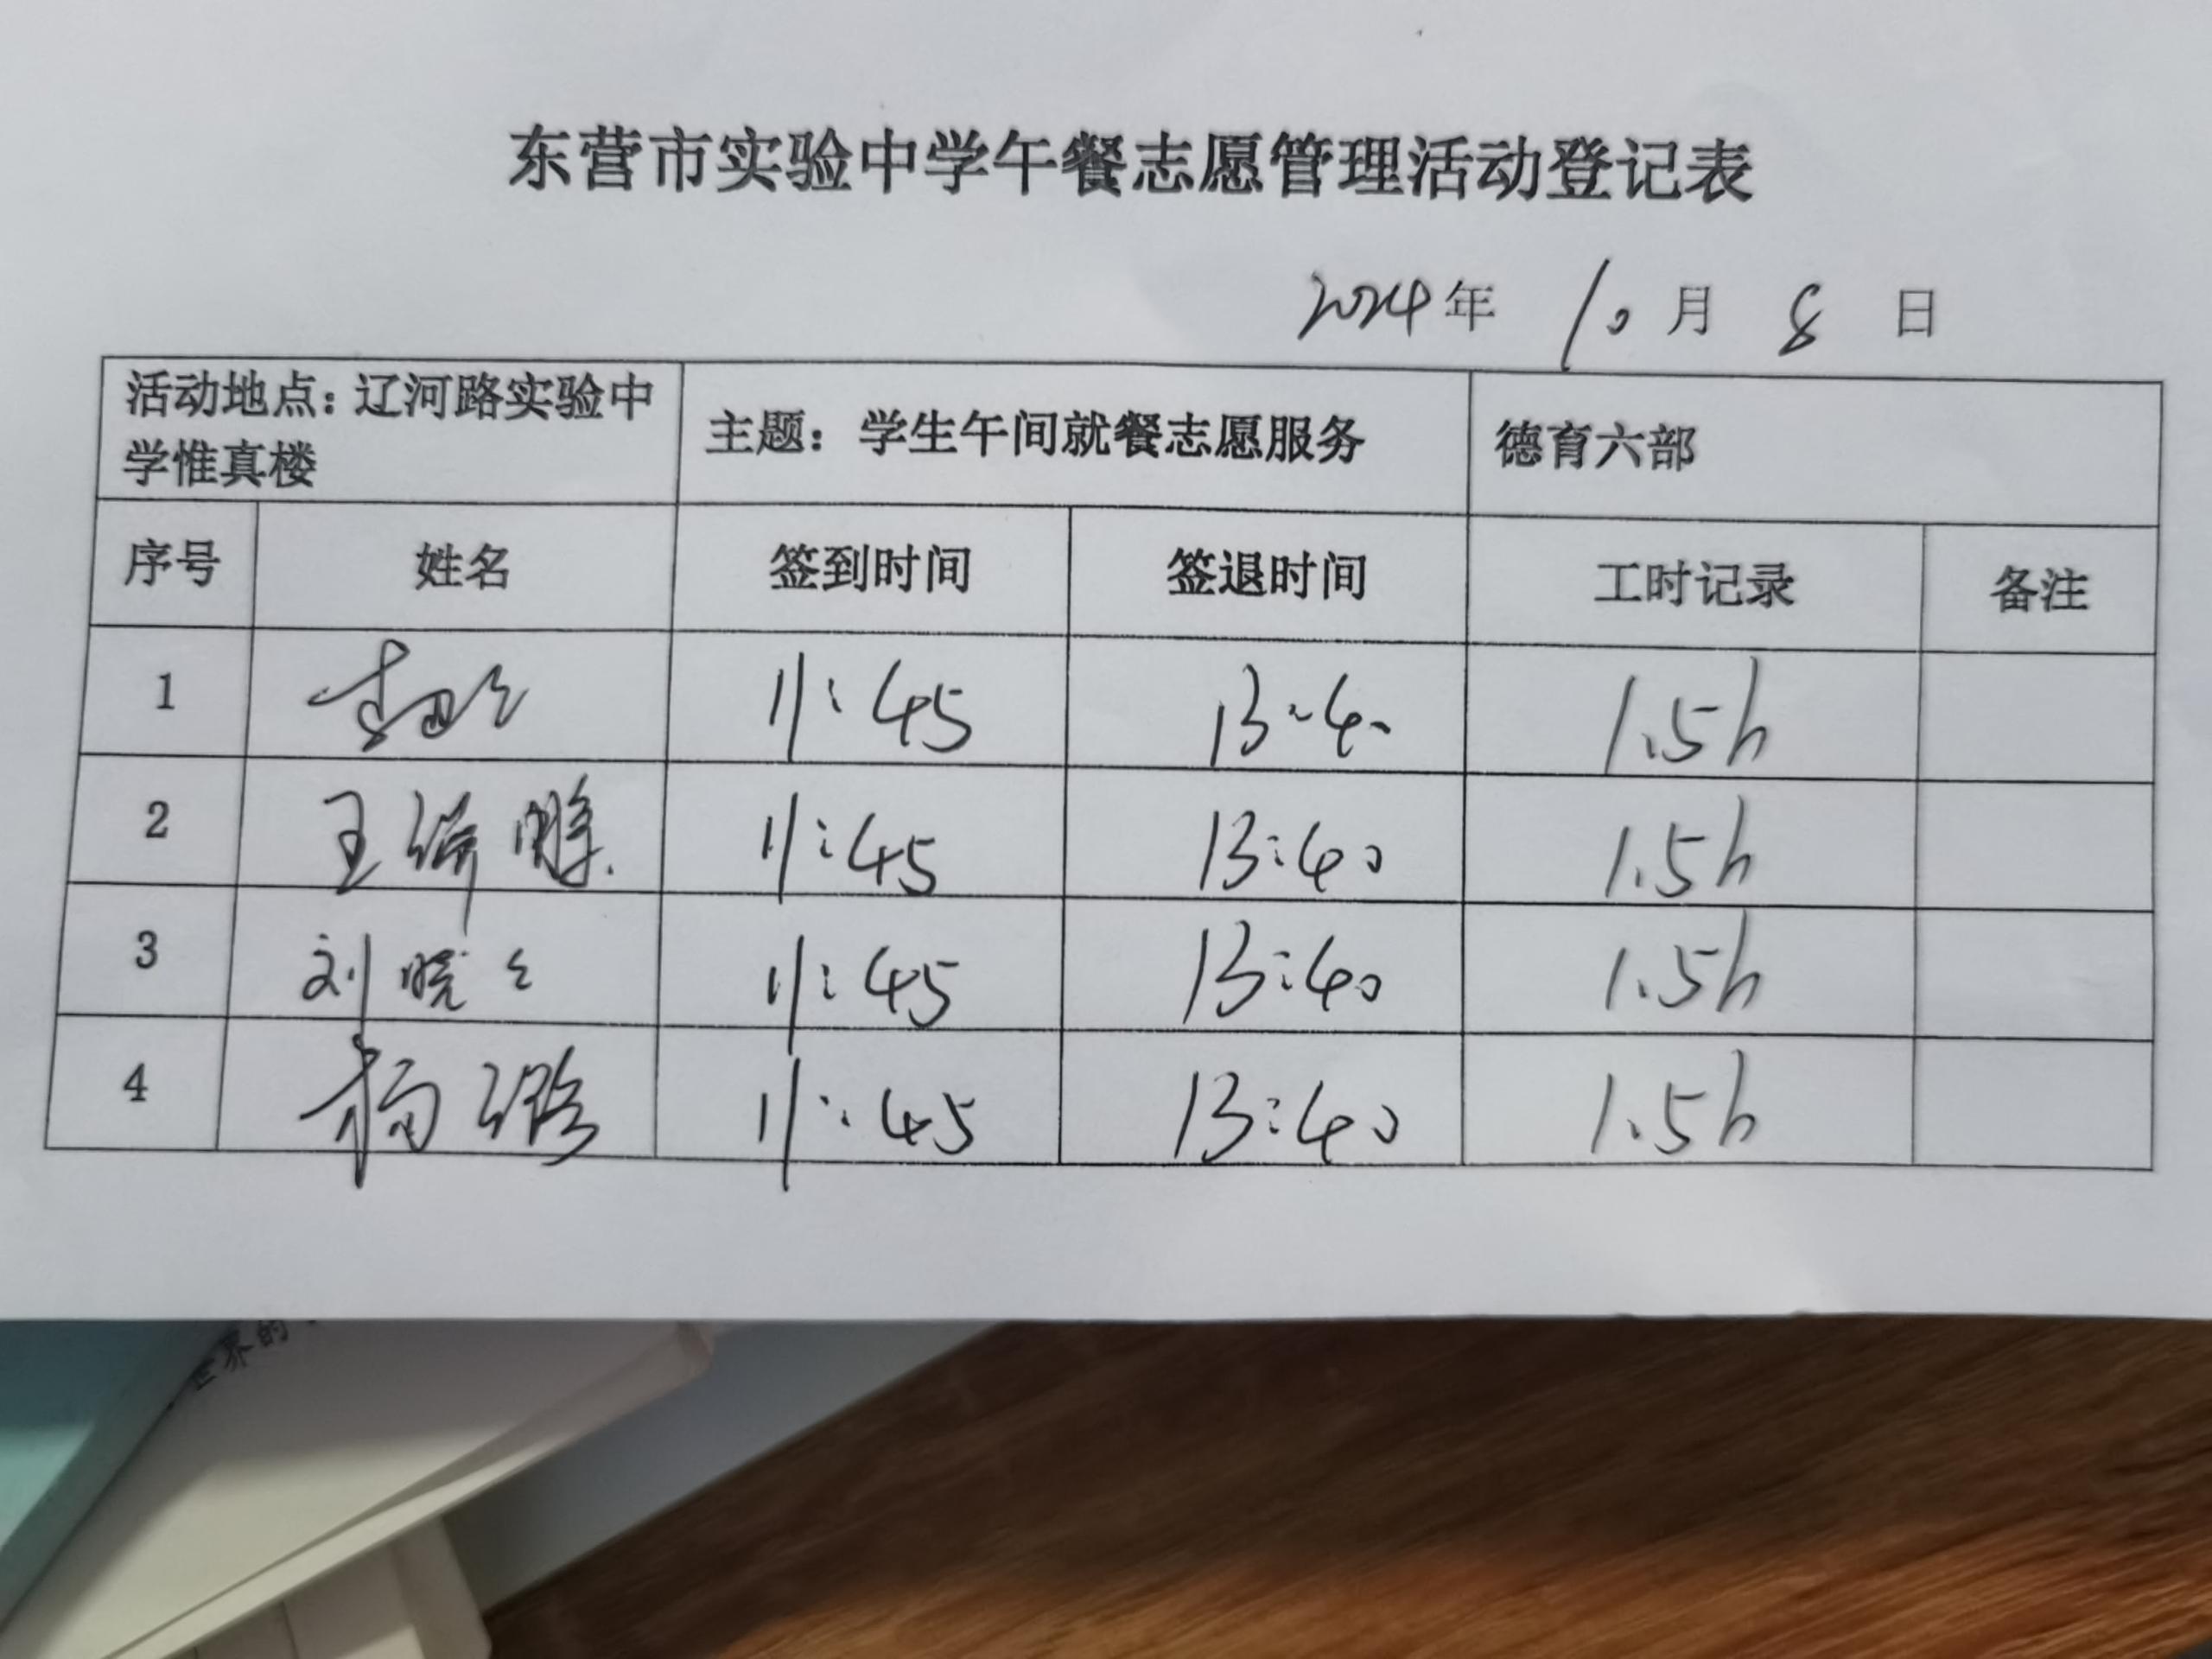 东营市实验中学午餐志愿管理活动登记表
2024年 10月 8日
活动地点：辽河路实验中学惟真楼 主题：学生午间就餐志愿服务 德育六部
序号 姓名 签到时间 签退时间 工时记录 备注
1 11:45 13:40 1.5h
2 王 11:45 13:40 1.5h
3 刘晓 11:45 13:40 1.5h
4 杨璐 11:45 13:40 1.5h
世界的